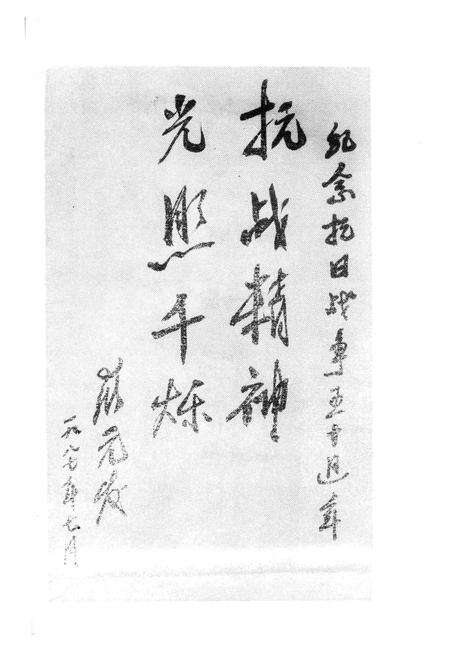 纪念抗日战争五十周年
抗战精神
光照千秋
元发
一九八七年七月